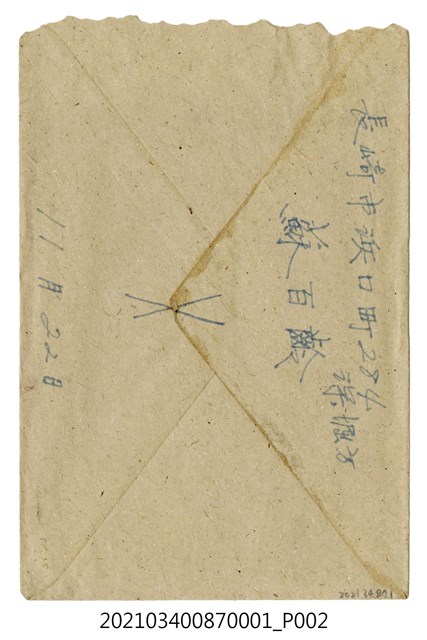 長崎市浜口町284
深堀方
蘇百齡
11月22日
2021.34.87.1
202103400870001_P002